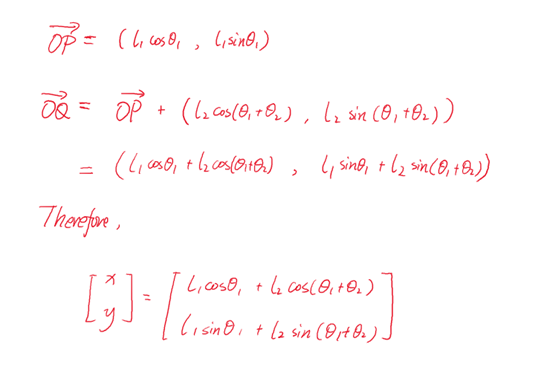 $\overrightarrow{OP} = (l_1 \cos\theta_1 , l_1 \sin\theta_1)$
$\overrightarrow{OQ} = \overrightarrow{OP} + (l_2 \cos(\theta_1+\theta_2) , l_2 \sin(\theta_1+\theta_2))$
$= (l_1 \cos\theta_1 + l_2 \cos(\theta_1+\theta_2) , l_1 \sin\theta_1 + l_2 \sin(\theta_1+\theta_2))$
Therefore,
$\begin{bmatrix} x \\ y \end{bmatrix} = \begin{bmatrix} l_1 \cos\theta_1 + l_2 \cos(\theta_1+\theta_2) \\ l_1 \sin\theta_1 + l_2 \sin(\theta_1+\theta_2) \end{bmatrix}$